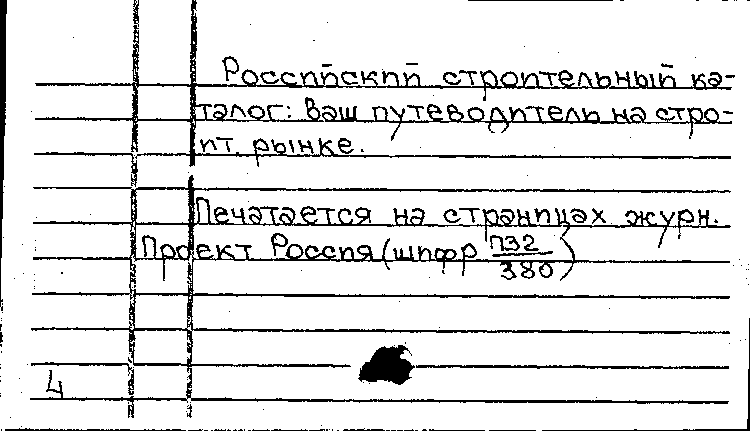 Российский строительный ка-
талог: Ваш путеводитель на стро-
ит. рынке.
Печатается на страницах журн.
Проект Россия (шифр П32/380)
4